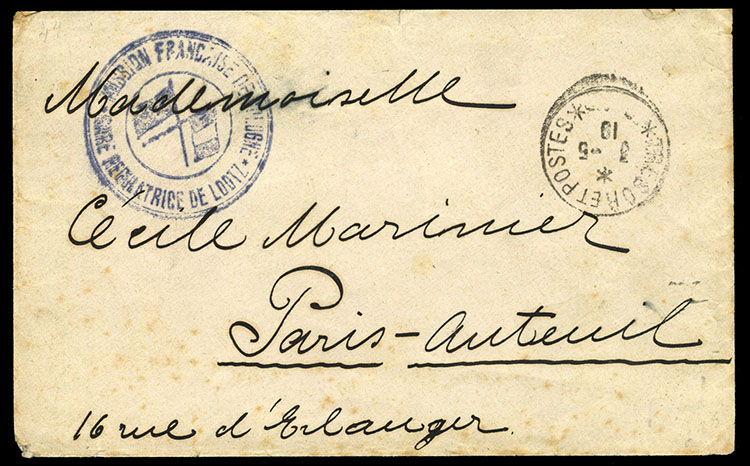 MISSION FRANÇAISE DE POLOGNE * GARE REGULATRICE DE LODTZ *
TRESOR ET POSTES
Mademoiselle
Cécile Marinier
Paris-Auteuil
16 rue d'Erlanger.